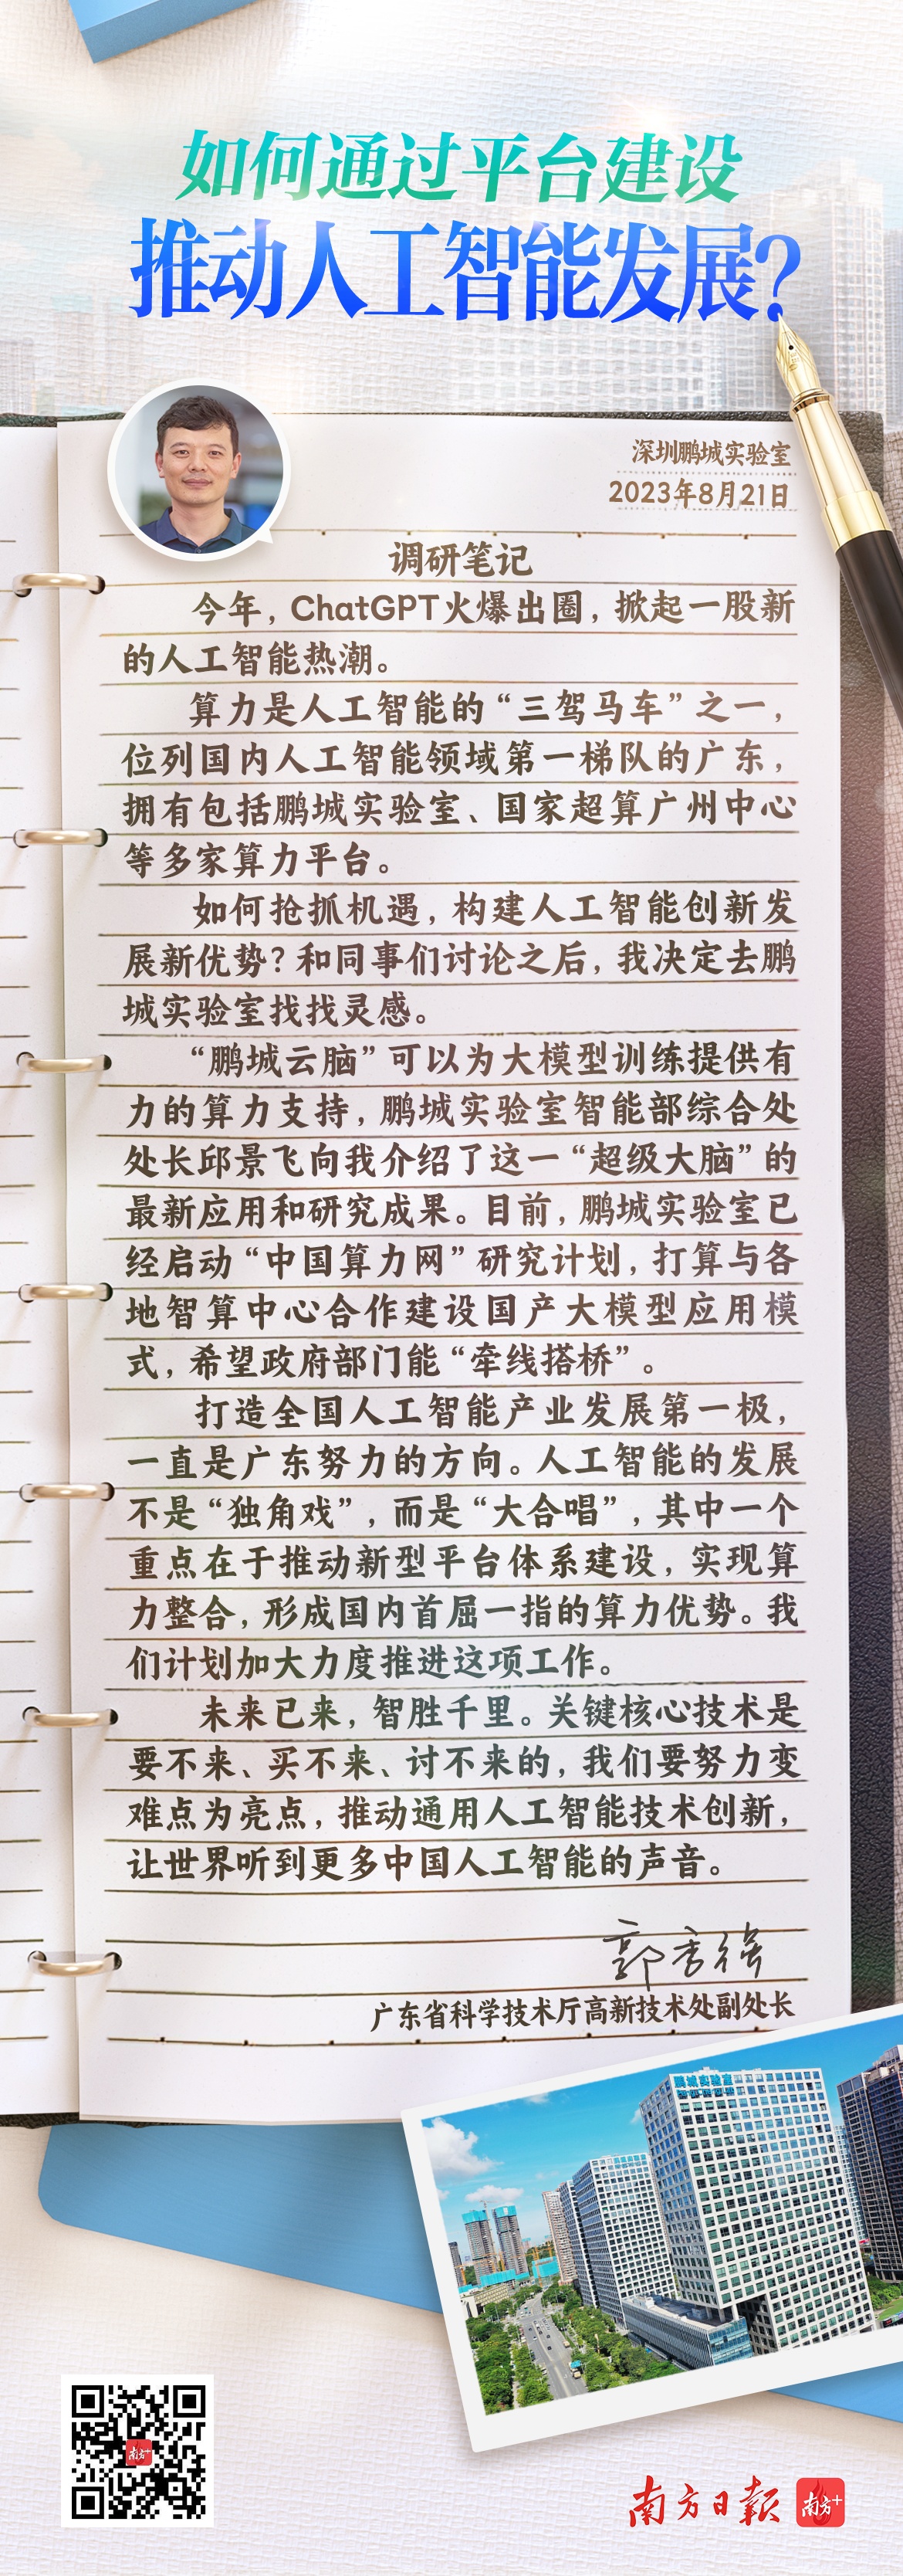 如何通过平台建设
推动人工智能发展？
深圳鹏城实验室
2023年8月21日
调研笔记
今年，ChatGPT火爆出圈，掀起一股新
的人工智能热潮。
算力是人工智能的“三驾马车”之一，
位列国内人工智能领域第一梯队的广东，
拥有包括鹏城实验室、国家超算广州中心
等多家算力平台。
如何抢抓机遇，构建人工智能创新发
展新优势？和同事们讨论之后，我决定去鹏
城实验室找找灵感。
“鹏城云脑”可以为大模型训练提供有
力的算力支持，鹏城实验室智能部综合处
处长邱景飞向我介绍了这一“超级大脑”的
最新应用和研究成果。目前，鹏城实验室已
经启动“中国算力网”研究计划，打算与各
地智算中心合作建设国产大模型应用模
式，希望政府部门能“牵线搭桥”。
打造全国人工智能产业发展第一极，
一直是广东努力的方向。人工智能的发展
不是“独角戏”，而是“大合唱”，其中一个
重点在于推动新型平台体系建设，实现算
力整合，形成国内首屈一指的算力优势。我
们计划加大力度推进这项工作。
未来已来，智胜千里。关键核心技术是
要不来、买不来、讨不来的，我们要努力变
难点为亮点，推动通用人工智能技术创新，
让世界听到更多中国人工智能的声音。
郭秀强
广东省科学技术厅高新技术处副处长
鹏城实验室
南方+
南方日报 南方+